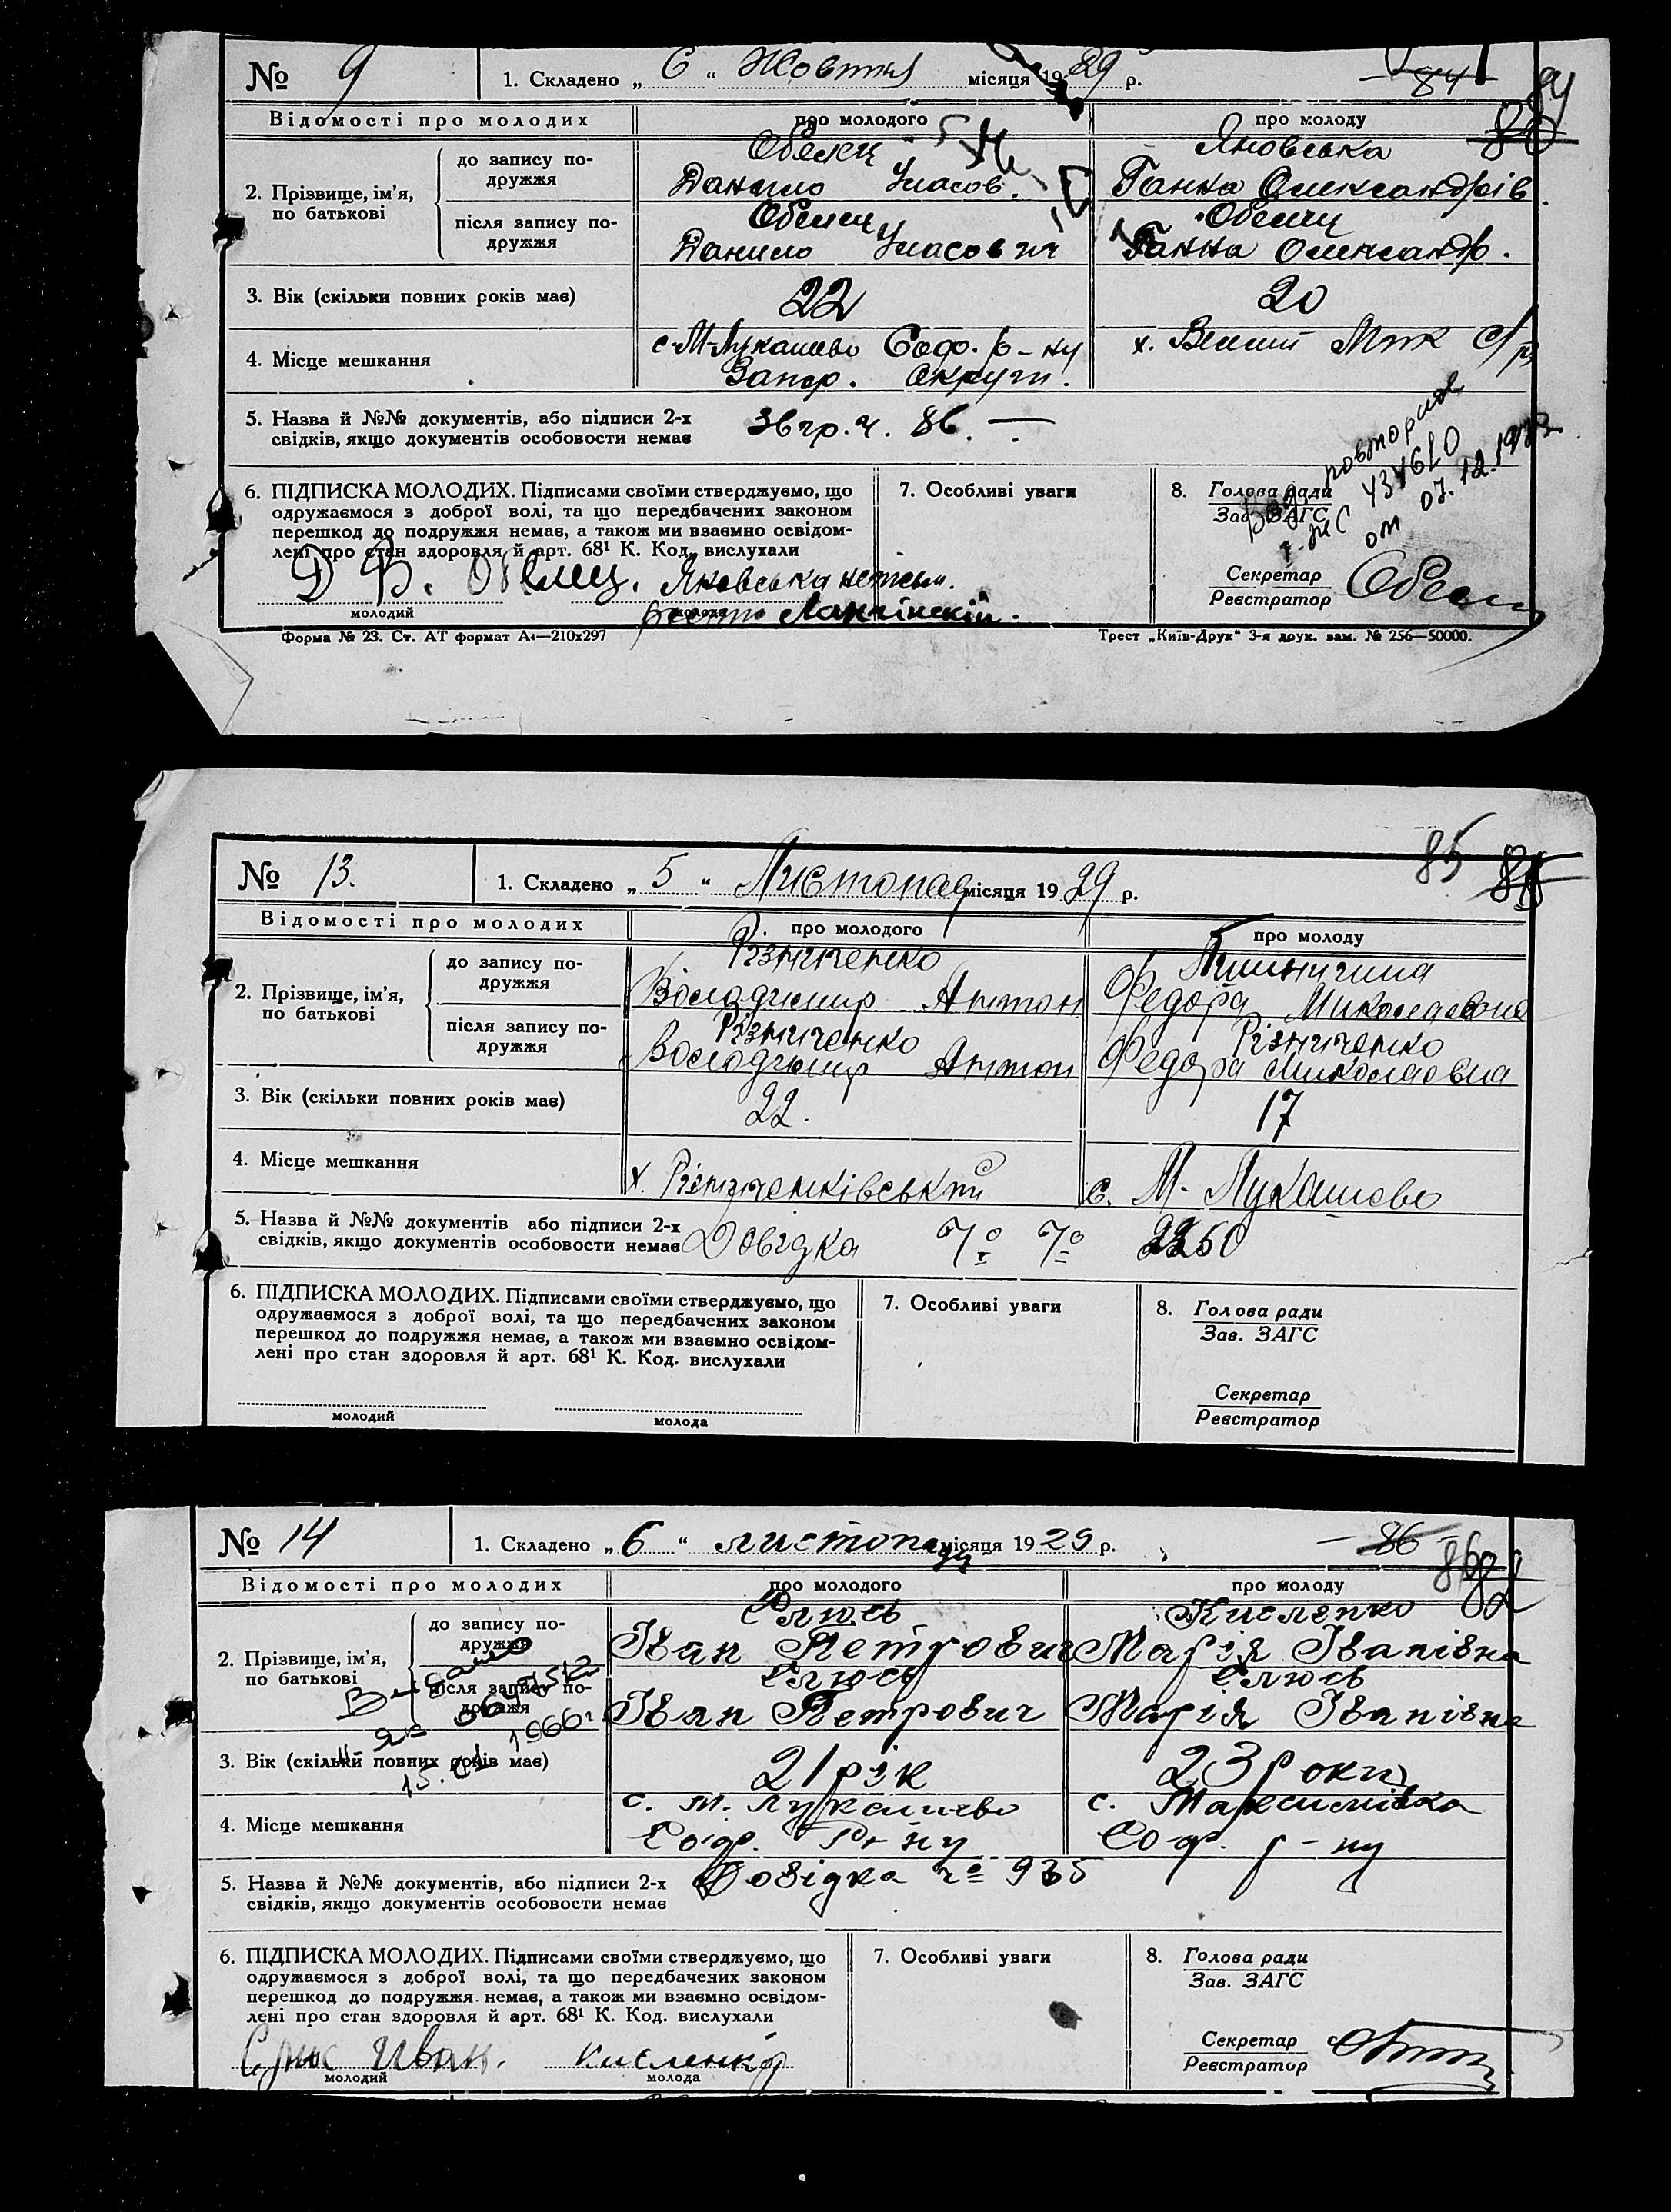 № 9 1. Складено „ 6 “ Жовтня місяця 1929 р. 84 84
Відомості про молодих про молодого про молоду
2. Прізвище, ім’я, по батькові
до запису подружжя
Обелец Яновська
Данило Уласов. Ганна Олександрів.
після запису подружжя
Обелец Обелец
Данило Уласович Ганна Олександр.
3. Вік (скільки повних років має) 22 20
4. Місце мешкання с. М-Лукашево Соф. р-ну х. Веселий
Запор. Округи.
5. Назва й №№ документів, або підписи 2-х
свідків, якщо документів особовости немає
повторно
от 07.12.19
6. ПІДПИСКА МОЛОДИХ. Підписами своїми стверджуємо, що
одружаємося з доброї волі, та що передбачених законом
перешкод до подружжя немає, а також ми взаємно освідом-
лені про стан здоровля й арт. 68¹ К. Код. вислухали
7. Особливі уваги
8. Голова ради
Зав. ЗАГС
Д В. Обелец. Яновська
Секретар
Реєстратор
молодий молода
Форма № 23. Ст. АТ формат А₄—210х297 Трест „Київ-Друк“ 3-я друк. зам. № 256—50000.
№ 13. 1. Складено „ 5 “ Листопад місяця 1929 р. 85
Відомості про молодих про молодого про молоду
2. Прізвище, ім’я, по батькові
до запису подружжя
Різниченко
Володимир Антон Федора Миколаєвна
після запису подружжя
Різниченко Різниченко
Володимир Антон Федора Миколаєвна
3. Вік (скільки повних років має) 22. 17
4. Місце мешкання х. Різниченківський с. М-Лукашево
5. Назва й №№ документів або підписи 2-х
свідків, якщо документів особовости немає
Довідка
6. ПІДПИСКА МОЛОДИХ. Підписами своїми стверджуємо, що
одружаємося з доброї волі, та що передбачених законом
перешкод до подружжя немає, а також ми взаємно освідом-
лені про стан здоровля й арт. 68¹ К. Код. вислухали
7. Особливі уваги
8. Голова ради
Зав. ЗАГС
Секретар
Реєстратор
молодий молода
№ 14 1. Складено „ 6 “ листопаду місяця 1929 р. 86 86
Відомості про молодих про молодого про молоду
2. Прізвище, ім’я, по батькові
до запису подружжя
Слюсь Кисленко
Іван Петрович Марія Іванівна
після запису подружжя
Слюсь Слюсь
Іван Петрович Марія Іванівна
Видано
3. Вік (скільки повних років має) 21 рік 23 роки
4. Місце мешкання с. м. Лукашево с. Максимівка
Соф. р-ну Соф. р-ну
5. Назва й №№ документів, або підписи 2-х
свідків, якщо документів особовости немає
Довідка 935
6. ПІДПИСКА МОЛОДИХ. Підписами своїми стверджуємо, що
одружаємося з доброї волі, та що передбачених законом
перешкод до подружжя немає, а також ми взаємно освідом-
лені про стан здоровля й арт. 68¹ К. Код. вислухали
7. Особливі уваги
8. Голова ради
Зав. ЗАГС
Слюс Иван. Кисленко
Секретар
Реєстратор
молодий молода